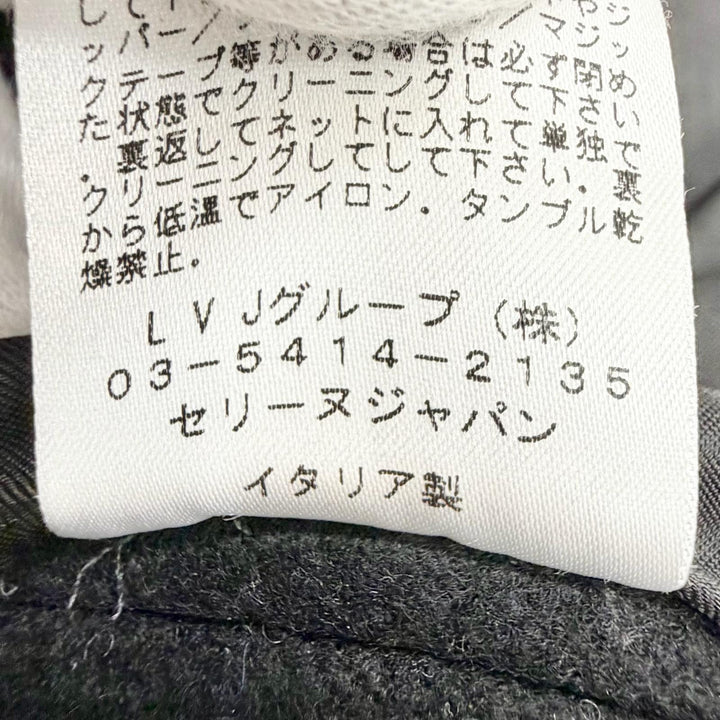 クテープ等がある場合は必ず閉め
た状態でクリーニングして下さい
．裏返してネットに入れて単独で
クリーニングしてして下さい．裏
から低温でアイロン．タンブル乾
燥禁止．
ＬＶＪグループ（株）
０３－５４１４－２１３５
セリーヌジャパン
イタリア製